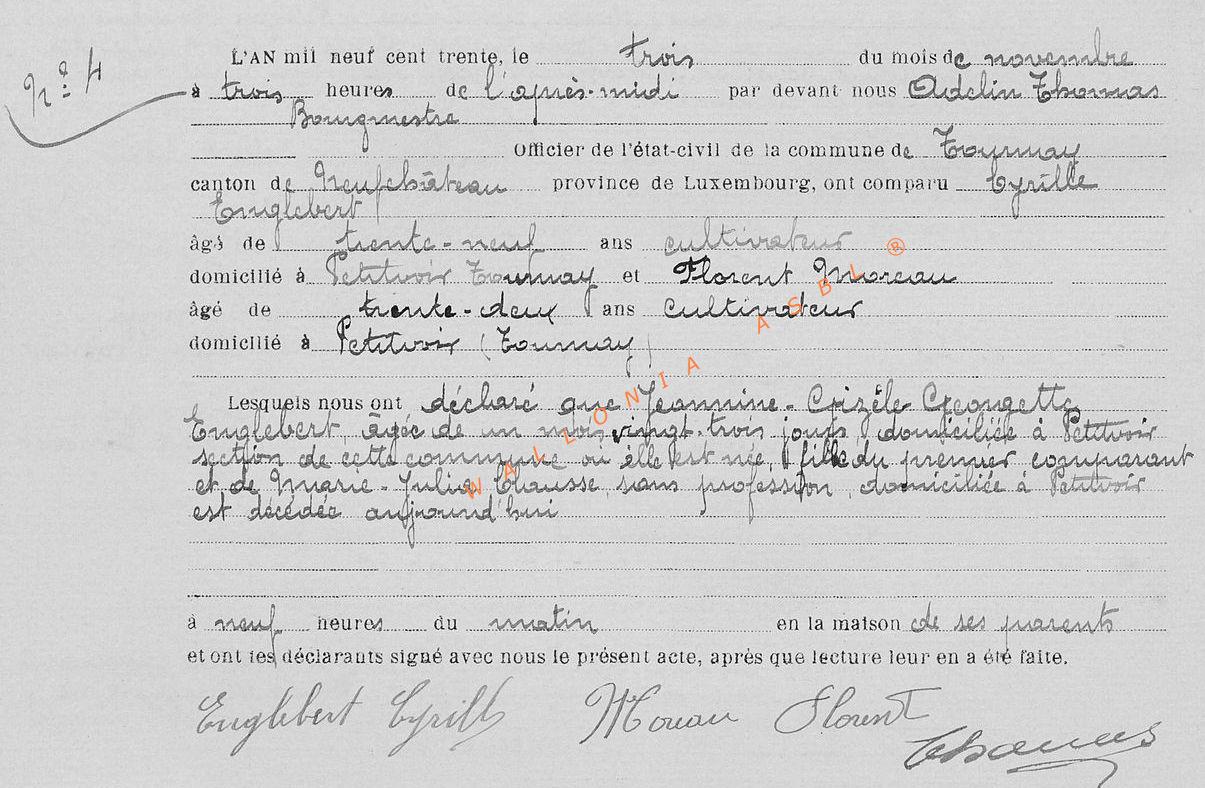 Nº 4
L'AN mil neuf cent trente, le trois du mois de novembre
à trois heures de l'après-midi par devant nous Adelin Thomas
Bourgmestre
Officier de l'état-civil de la commune de Tournay
canton de Neufchâteau province de Luxembourg, ont comparu Cyrille
Englebert
âgé de trente-neuf ans cultivateur
domicilié à Petitvoir Tournay et Florent Moreau
âgé de trente-deux ans cultivateur
domicilié à Petitvoir (Tournay)
Lesquels nous ont déclaré que Jeannine-Gizèle Georgette
Englebert, âgée de un mois vingt-trois jours domiciliée à Petitvoir
section de cette commune ou elle est née, fille du premier comparant
et de Marie-Julia Clausse, sans profession, domiciliée à Petitvoir
est décédée aujourd'hui
à neuf heures du matin en la maison de ses parents
et ont les déclarants signé avec nous le présent acte, après que lecture leur en a été faite.
Englebert Cyrille Moreau Florent
Thomas
WALLONIA ASBL ®